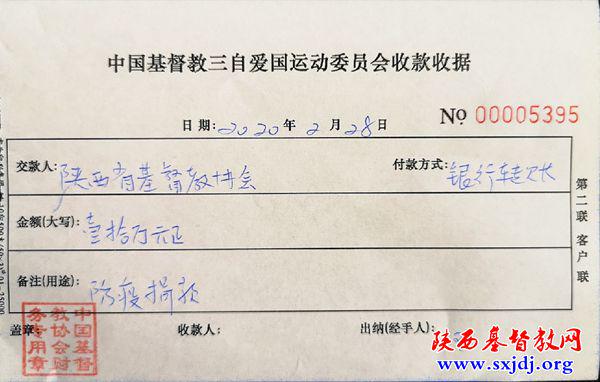 中国基督教三自爱国运动委员会收款收据
No 00005395
日期:2020年2月28日
交款人:陕西省基督教协会 付款方式:银行转账
金额(大写):壹拾万元正
备注(用途):防疫捐款
第二联 客户联
盖章: 收款人: 出纳(经手人):
中国基督教协会财务专用章
陕西基督教网
www.sxjdj.org